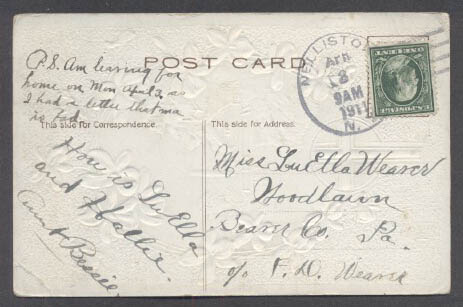 P.S. Am leaving for
home on Mon April 3, as
I had a letter that ma
is bad.
POST CARD
NELLISTON
APR
2
9AM
1911
N.
This side for Correspondence.
This side for Address.
How is LuElla
and Hallie.
Aunt Bessie.
Miss LuElla Weaver
Woodlawn
Beaver Co. Pa.
c/o F. D. Weaver